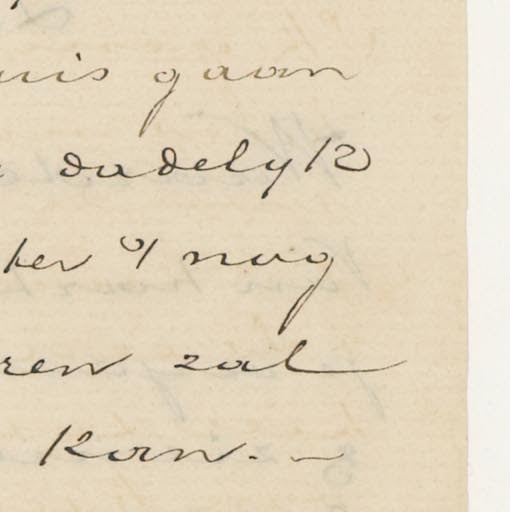 uis gaan
dadelyk
ter of nog
ren zal
kan. –